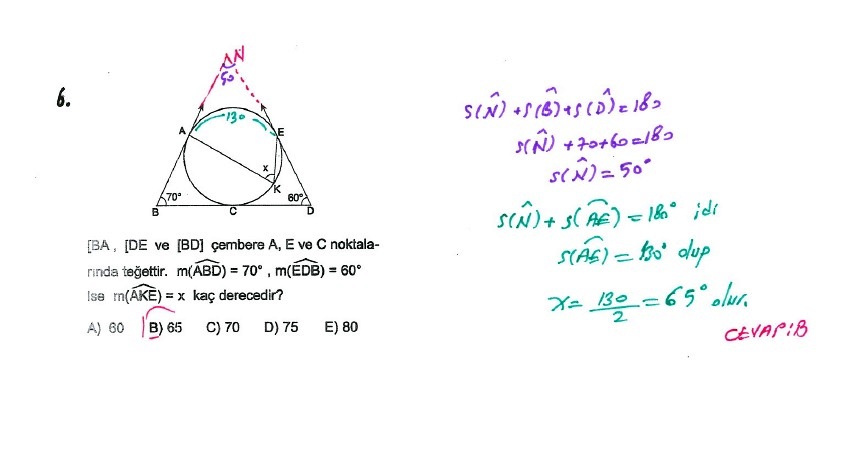 6.
N
50
130
A
E
x
K
70°
60°
B
C
D
[BA , [DE ve [BD] çembere A, E ve C noktala-
rında teğettir. m(ABD) = 70° , m(EDB) = 60°
ise m(AKE) = x kaç derecedir?
A) 60 B) 65 C) 70 D) 75 E) 80
s(N̂)+s(B̂)+s(D̂)=180
s(N̂)+70+60=180
s(N̂)=50°
s(N̂)+s(AE)=180° idi
s(AE)=130° olup
x=130/2=65° olur.
CEVAP:B